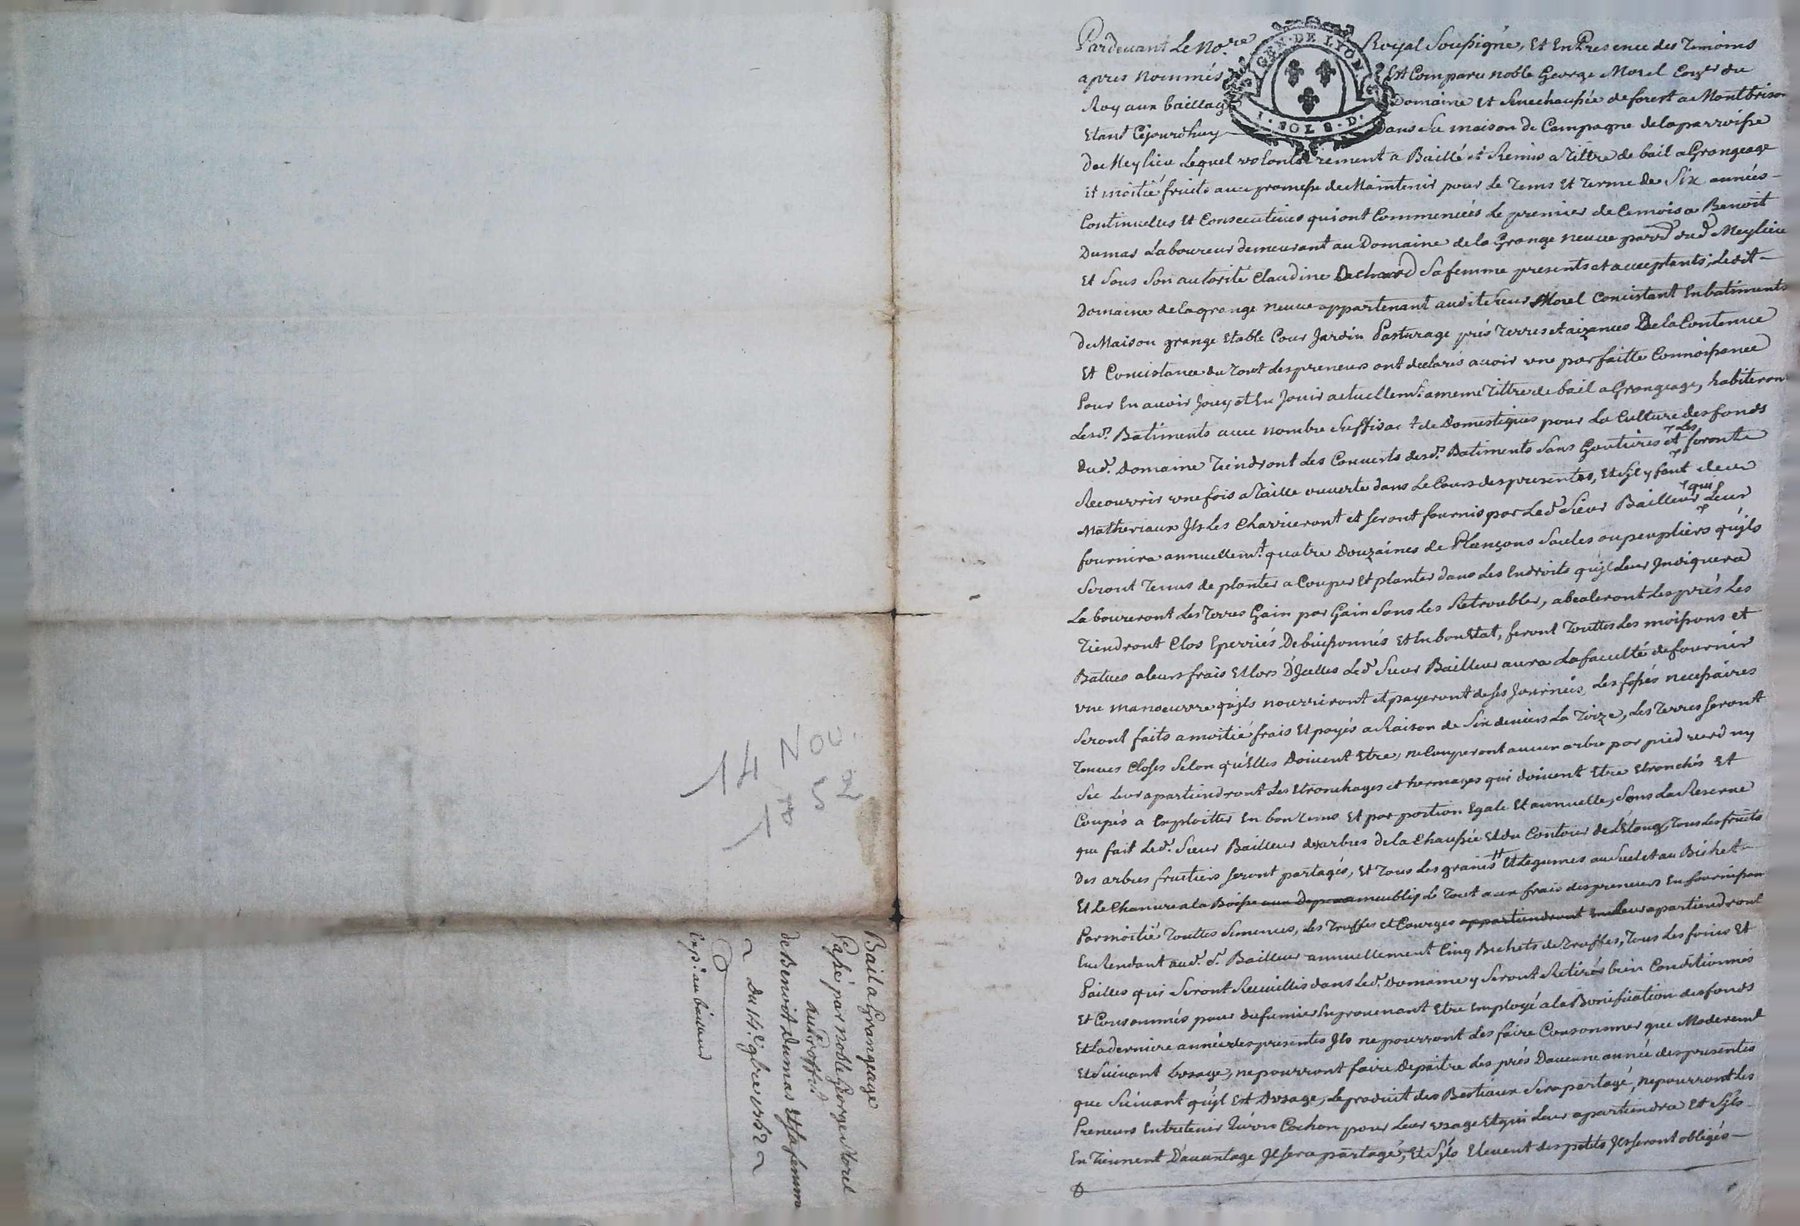 Pardevant Le No.re Royal Soussigné, Et En Presence des Temoins
apres nommés Est Comparu noble George Morel Con.er du
Roy aux bailliag Domaine et Senechaussée de forest a Montbrison
Etant Cejourdhuy Dans Sa maison de Campagne de la parroisse
GEN. DE LYON
1. SOL 8. D.
De Meylieu Lequel volontairement a Baillé et Remis a Tittre de bail a Grangeage
et moitié fruits avec promesse de Maintenir pour le Tems Et Terme de Six années
Continuelles Et Consecutives qui ont Commencées Le premier de Cemois a Benoit
Dumas Laboureur demeurant au Domaine de la Grange neuve parr.e dud. Meylieu
Et Sous Son autorité Claudine Dechard Sa femme presents et acceptants, Ledit
Domaine de la grange neuve appartenant audit Sieur Morel Concistant En batiments
De Maison grange Etable Cour Jardin Pasturage prés Terres et aizances De la Contenue
Et Concistance du Tout Les preneurs ont declarés avoir une parfaitte Connoissance
Pour En avoir Jouy et En Jouir actuellem.t a meme Tittre de bail a Grangeage, habiteron
Lesd. Batiments avec nombre Suffisant de Domestiques pour La Culture des fonds
dud. Domaine Tiendront Les Couverts desd. Batiments Sans Goutieres et Les feront
Recouvrir une fois a Taille ouverte dans Le Cours des presentes, Et S'il y faut des
Matheriaux Ils Les Charrieront et Seront fournis par Led. Sieur Bailleur qui Leur
fournira annuellem.t quatre Douzaines de Plançons Saules ou peupliers qu'ils
Seront Tenus de planter a Couper Et planter dans Les Endroits qu'il Leur Indiquera
Laboureront Les Terres Gain par Gain Sans Les Retroubler, abealeront Les prés Les
Tiendront Clos Eperriés Debuissonnés Et En bon Etat, feront Touttes Les moissons et
Batues a leurs frais Et Lors D'Icelles Led. Sieur Bailleur aura La faculté de fournir
une manoeuvre qu'ils nourriront et payeront de Ses Journées, Les fossés necessaires
Seront faits a moitié frais Et payés a Raison de Six deniers La Toize, Les Terres Seront
Tenues Closes Selon qu'Elles Doivent Etre, ne Couperont aucun arbre par pied verd ny
Sec Leur apartiendront Les Etronchages et hermages qui doivent Etre Etronchés Et
Coupés a Exploitter En bon Tems Et par portion Egale Et annuelle, Sous La Reserve
que fait Led. Sieur Bailleur des arbres de la Chaussée Et du Contour de L'Etang, Tous Les fruits
Des arbres fruitiers Seront partagés, Et Tous Les grains Et Legumes au Suel et au Bichet
Et Le Chanvre a la Boisse meublis Le Tout aux frais des preneurs En fournissan
Par moitié Touttes Semences, Les Truffes et Courges appartiendront Leur apartiendront
En Rendant aud. S.r Bailleur annuellement Cinq Bichets de Truffes, Tous Les foins Et
Pailles qui Seront Recueillis dans Led. Domaine y Seront Retirés bien Conditionnés
Et Consommés pour du fumier En provenant Etre Employé a la Bonification des fonds
Et La derniere année des presentes Ils ne pourront Les faire Consommer que Moderem.t
Et Suivant L'usage, ne pourront faire depaitre Les prés D'aucune année des presentes
que Suivant qu'il Est D'usage, Le produit des Bestiaux Sera partagé, ne pourront Les
Preneurs Entretenir Cochon pour Leur usage Et qui Leur apartiendra Et S'ils
En Tiennent D'avantage Il Sera partagé, Et S'ils Elevent des petits Ils Seront obligés
14 Nov.
52
Bail a Grangeage
Passé par Noble George Morel
au proffit
de Benoit Dumas Et Sa femme
Du 14.e 9bre 1752
Exp.on au bailleur